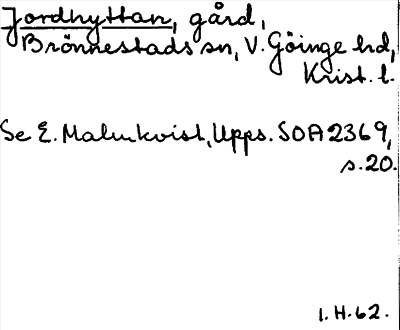 Jordhyttan, gård,
Brönnestads sn, V. Göinge hd,
Krist. l.
Se E. Malmkvist, Upps. SOA 2369,
s. 20.
1. H. 62.